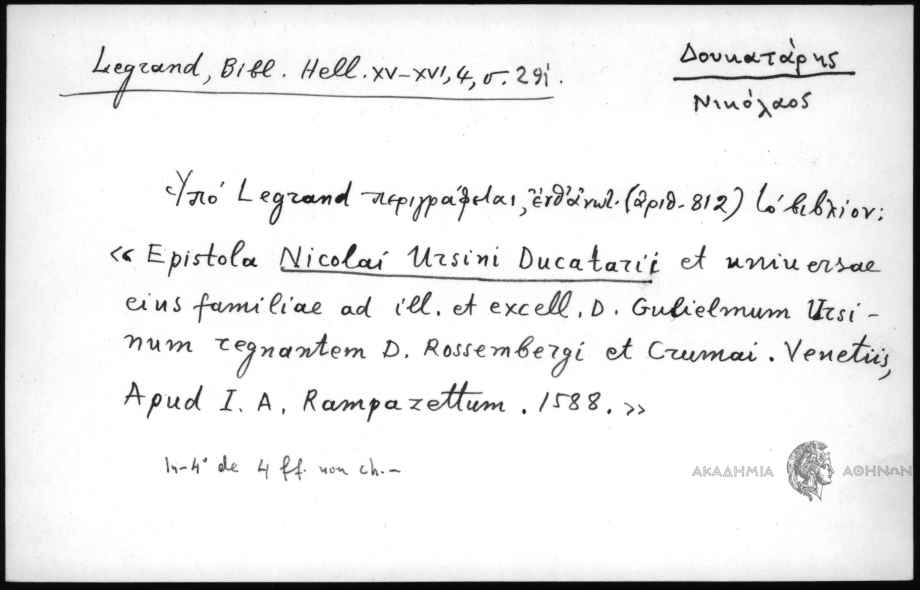 Legrand, Bibl. Hell. XV-XVI, 4, σ. 291.
Δουκατάρης
Νικόλαος
Ὑπό Legrand περιγράφεται, ἐνθ' ἀνωτ. (ἀριθ. 812) τό βιβλίον:
« Epistola Nicolai Ursini Ducatarii et universae
eius familiae ad ill. et excell. D. Gulielmum Ursi-
num regnantem D. Rossembergi et Crumai. Venetiis,
Apud I. A. Rampazettum. 1588. »
In-4° de 4 ff. non ch.-
ΑΚΑΔΗΜΙΑ ΑΘΗΝΩΝ